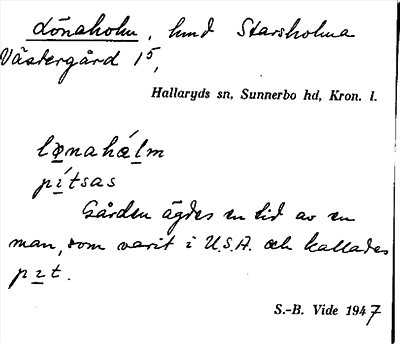 Lönaholm, hmd Starsholma
Västergård 1⁵,
Hallaryds sn, Sunnerbo hd, Kron. l.
lønahǽlm
pítsas
Gården ägdes en tid av en
man, som varit i U.S.A. och kallades
pɪt.
S.-B. Vide 1947